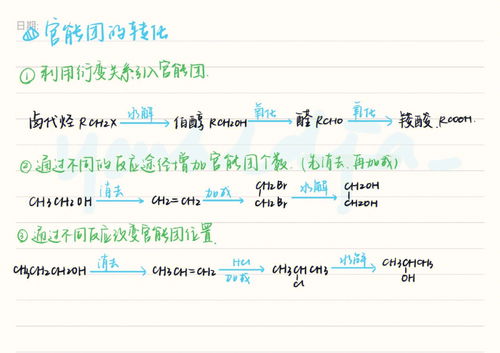 日期:
官能团的转化
① 利用衍变关系引入官能团.
卤代烃 RCH2X 水解 伯醇 RCH2OH 氧化 醛 RCHO 氧化 羧酸. RCOOH.
② 通过不同的反应途径增加官能团个数. (先消去.再加成)
CH3CH2OH 消去 CH2=CH2 加成 CH2Br CH2Br 水解 CH2OH CH2OH
③ 通过不同反应改变官能团位置.
CH3CH2CH2OH 消去 CH3CH=CH2 HCl 加成 CH3CHCH3 Cl 水解 CH3CHCH3 OH